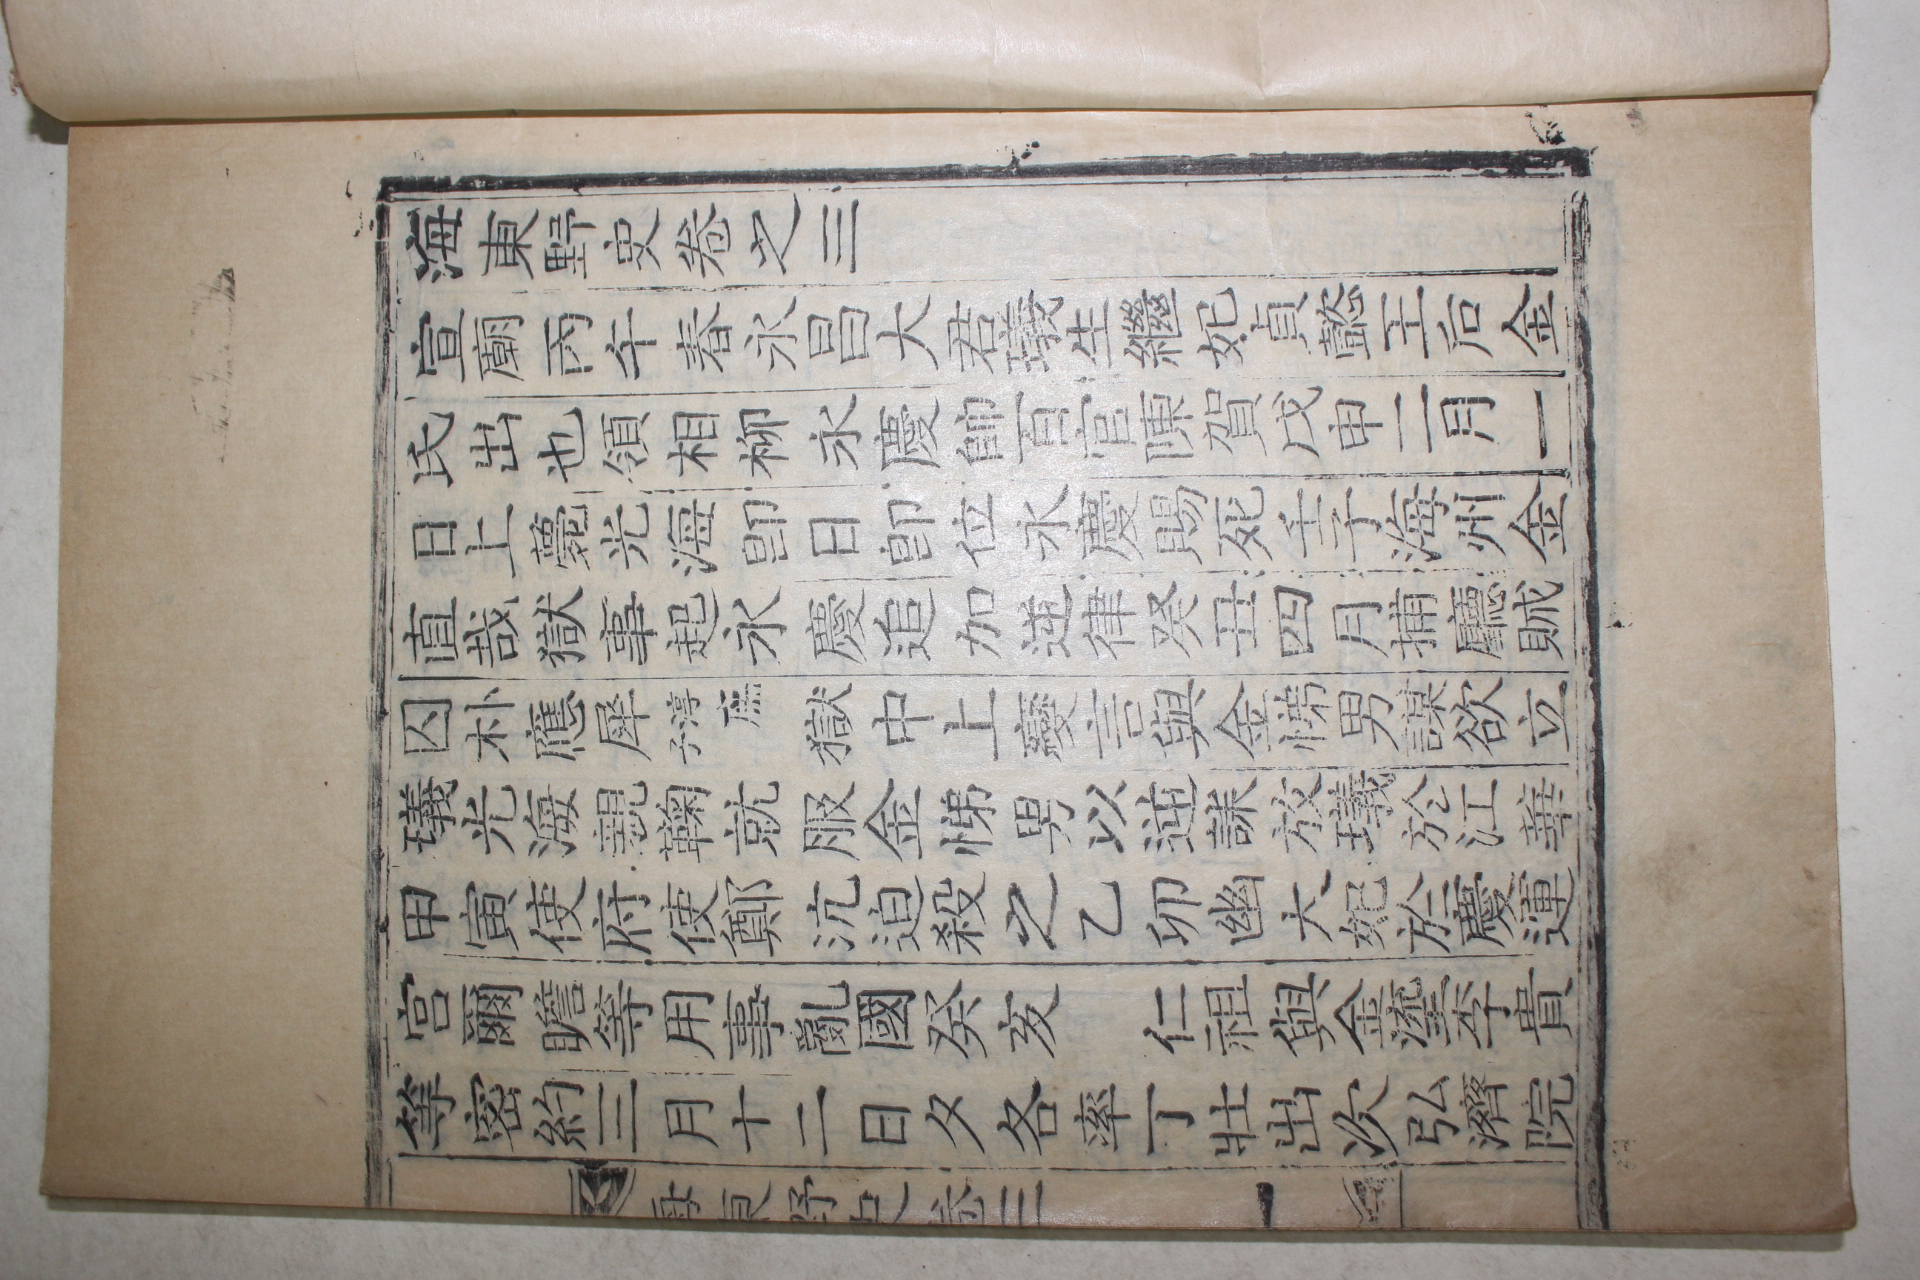 海東野史卷之三
宣廟丙午春永昌大君㼁生繼妃貞懿王后金
氏出也領相柳永慶帥百官陳賀戊申二月一
日上薨光海卽日卽位永慶賜死壬子海州金
直哉獄事起永慶追加逆律癸丑四月捕廳賊
囚朴應犀淳子庶獄中上變言與金悌男謀欲立
㼁光海親鞫就服金悌男以逆誅放㼁於江華
甲寅使府使鄭沆迫殺之乙卯幽大妃於慶運
宮爾瞻等用事亂國癸亥 仁祖與金瑬李貴
等密約三月十二日夕各率丁壯出次弘濟院
海東野史卷三
一